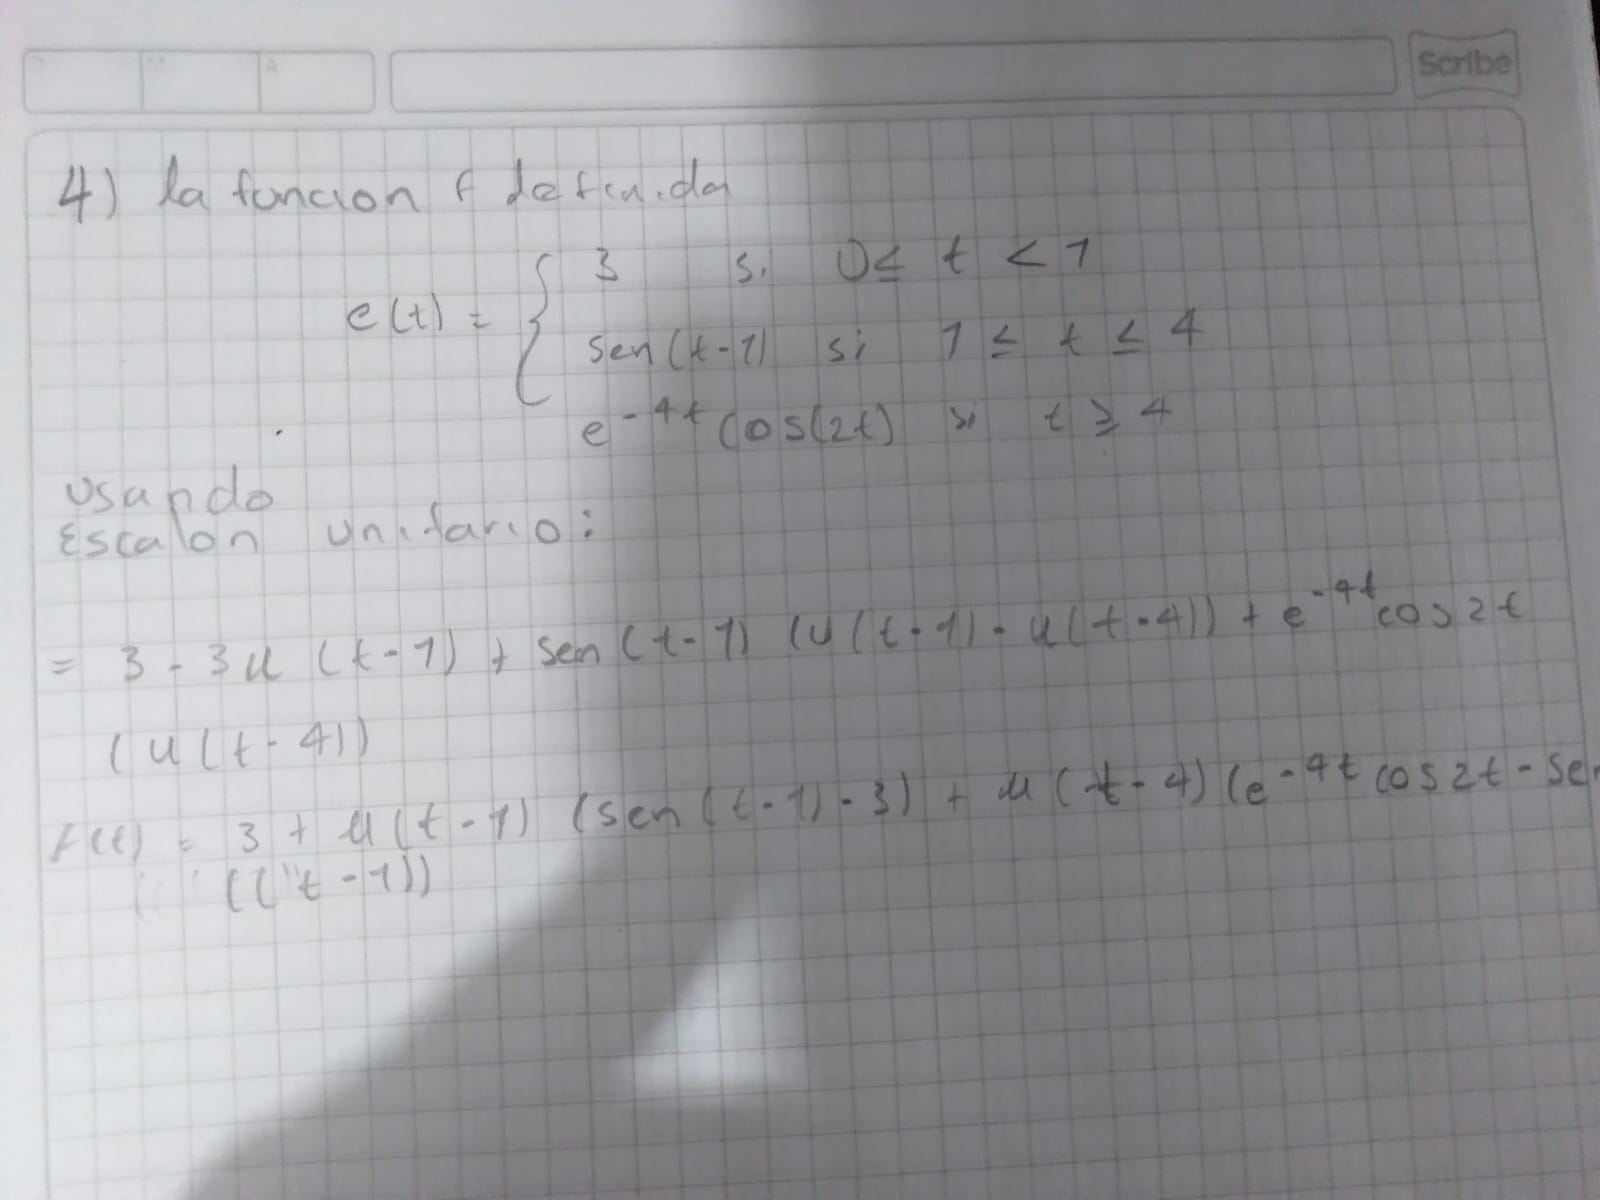 Scribe
4) la funcion f definida
e(t) = { 3 si 0 ≤ t < 1
sen(t-1) si 1 ≤ t ≤ 4
e^-4t cos(2t) si t ≥ 4
usando
Escalon unitario:
= 3 - 3u (t-1) + sen (t-1) (u(t-1) - u(t-4)) + e^-4t cos 2t
(u(t-4))
f(t) = 3 + u(t-1) (sen(t-1)-3) + u(t-4) (e^-4t cos2t - sen
((t-1))